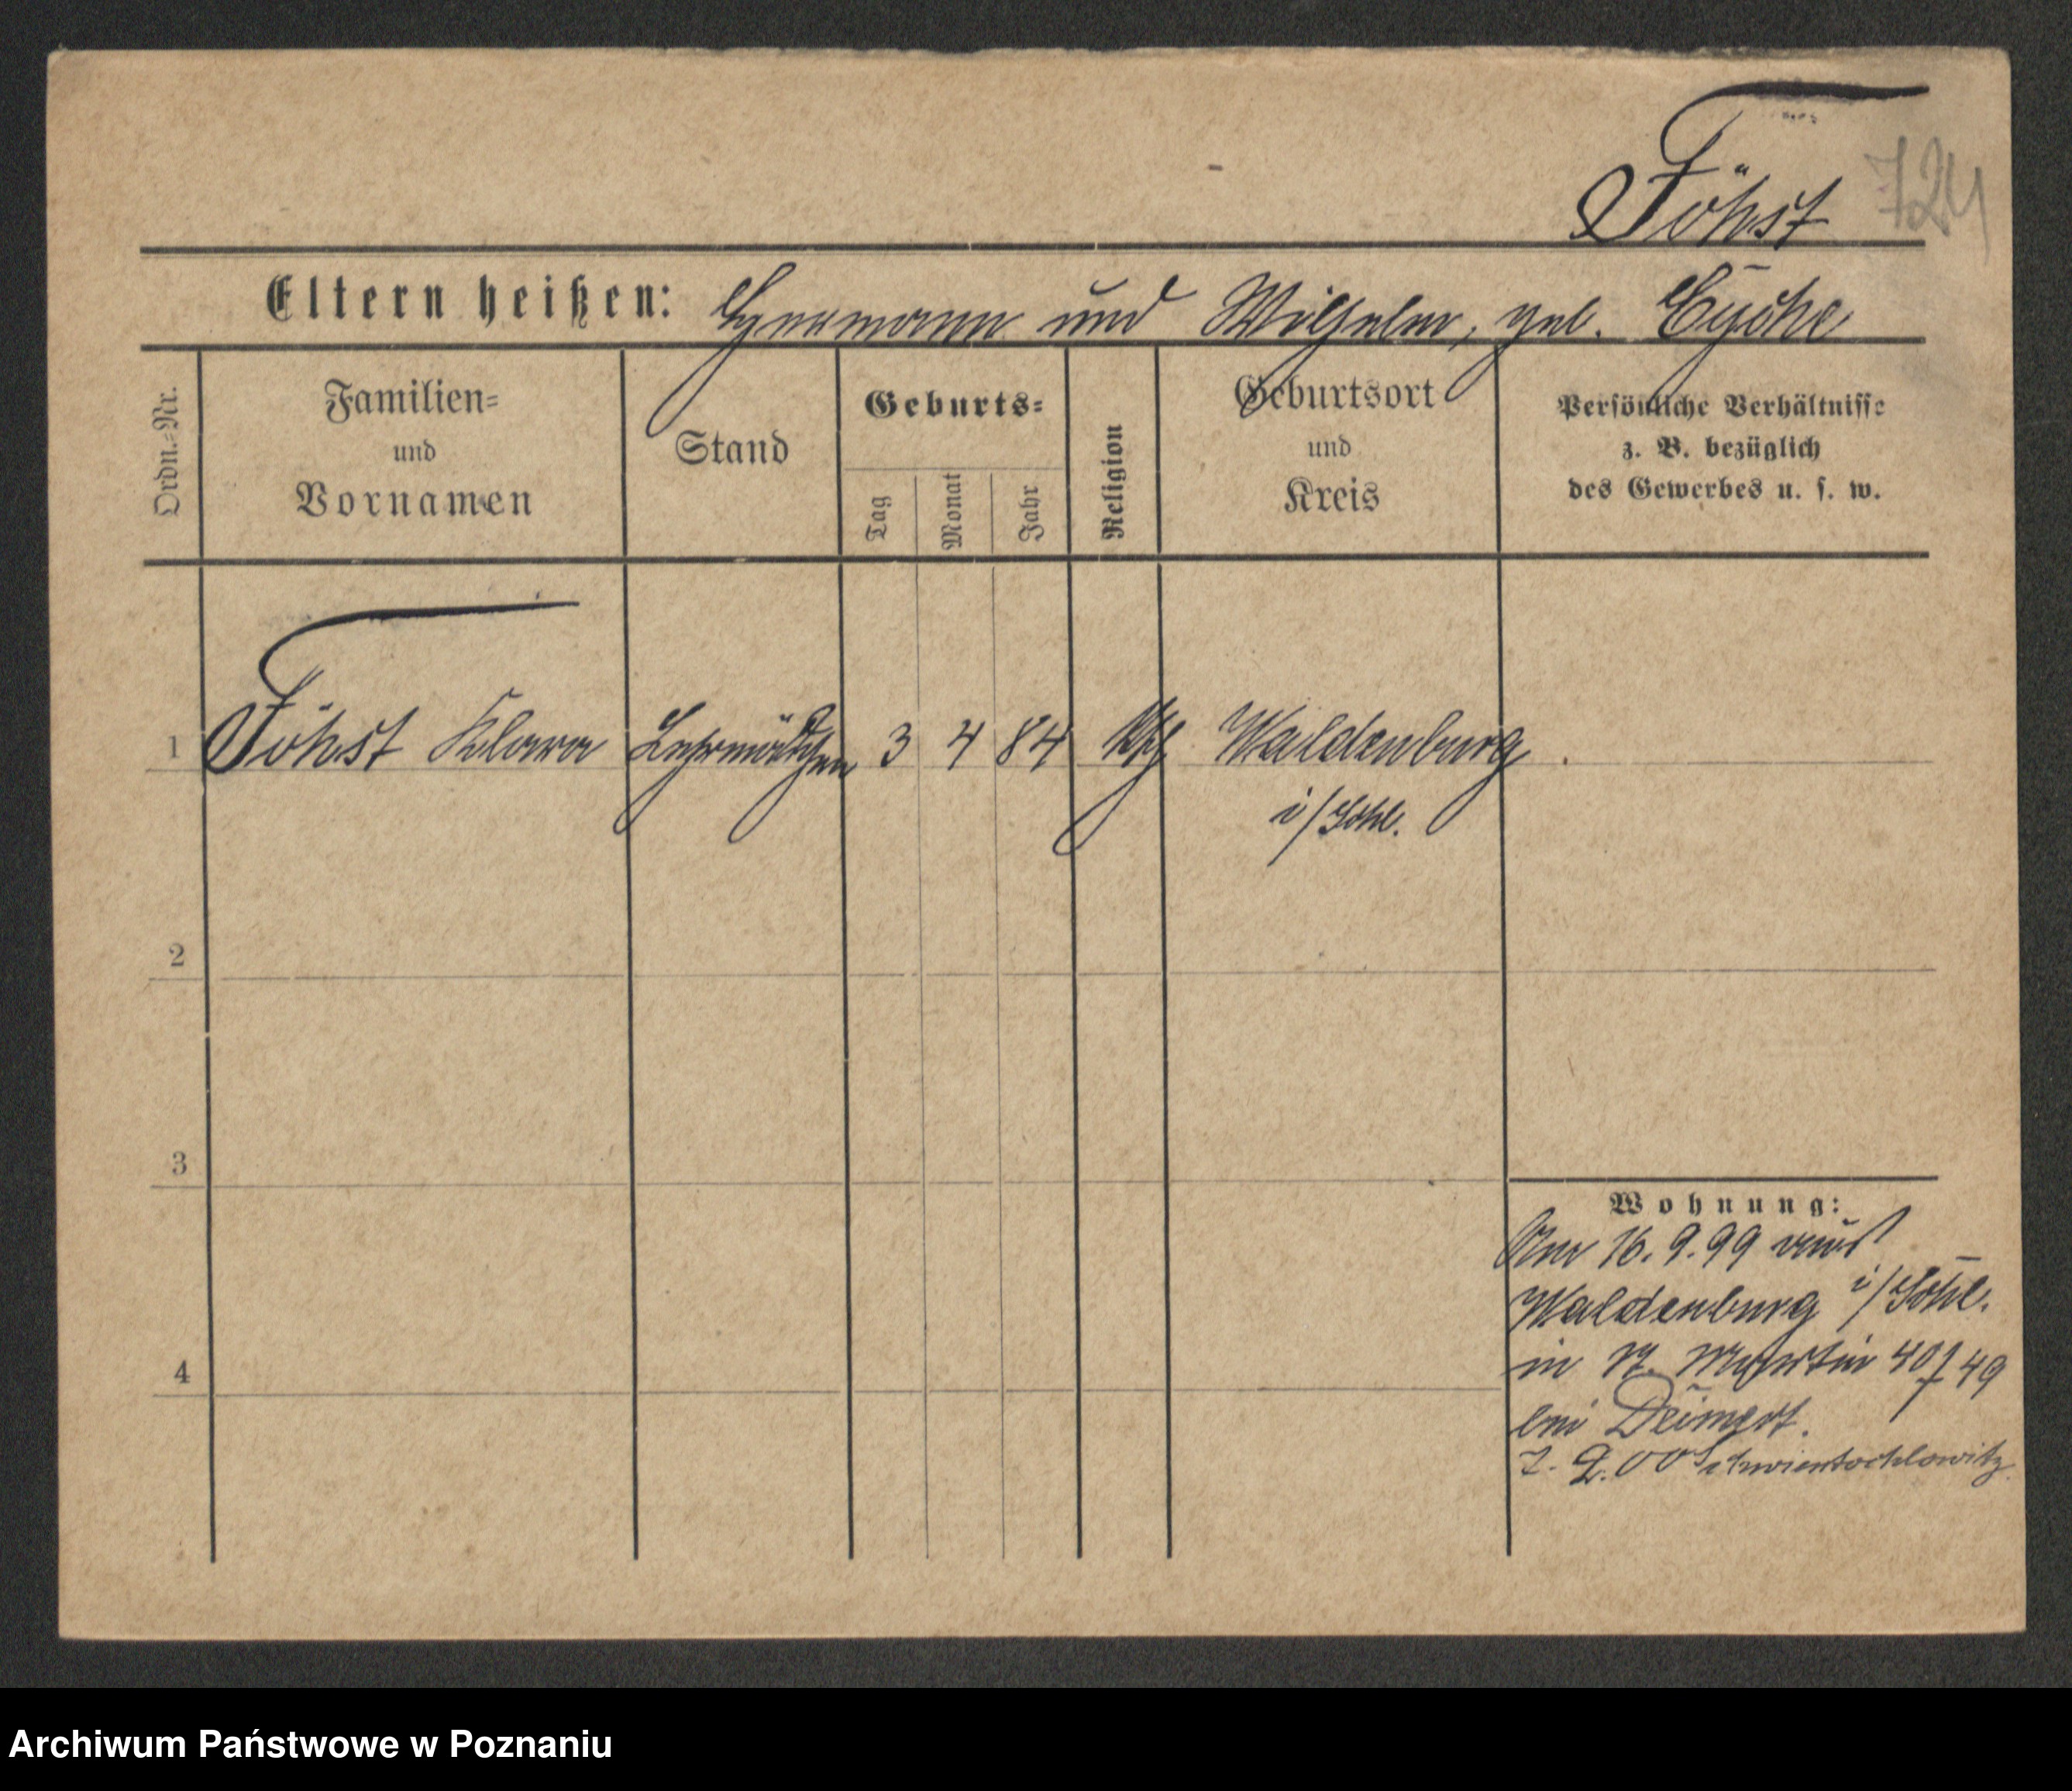 Föhst
724
Eltern heißen: Hermann und Wilhelm, geb.
Ordn.-Nr.
Familien-
und
Vornamen
Stand
Geburts-
Tag
Monat
Jahr
Religion
Geburtsort
und
Kreis
Persönliche Verhältnisse
z. B. bezüglich
des Gewerbes u. s. w.
1 Föhst Klara Lehrmädchen 3 4 84 Kth Waldenburg
i/Schl.
2
3
4
Wohnung:
Am 16. 9. 99 aus
Waldenburg i/Schl.
in St. Martin 40/49
bei
2. 2. 00 Schwientochlowitz
Archiwum Państwowe w Poznaniu